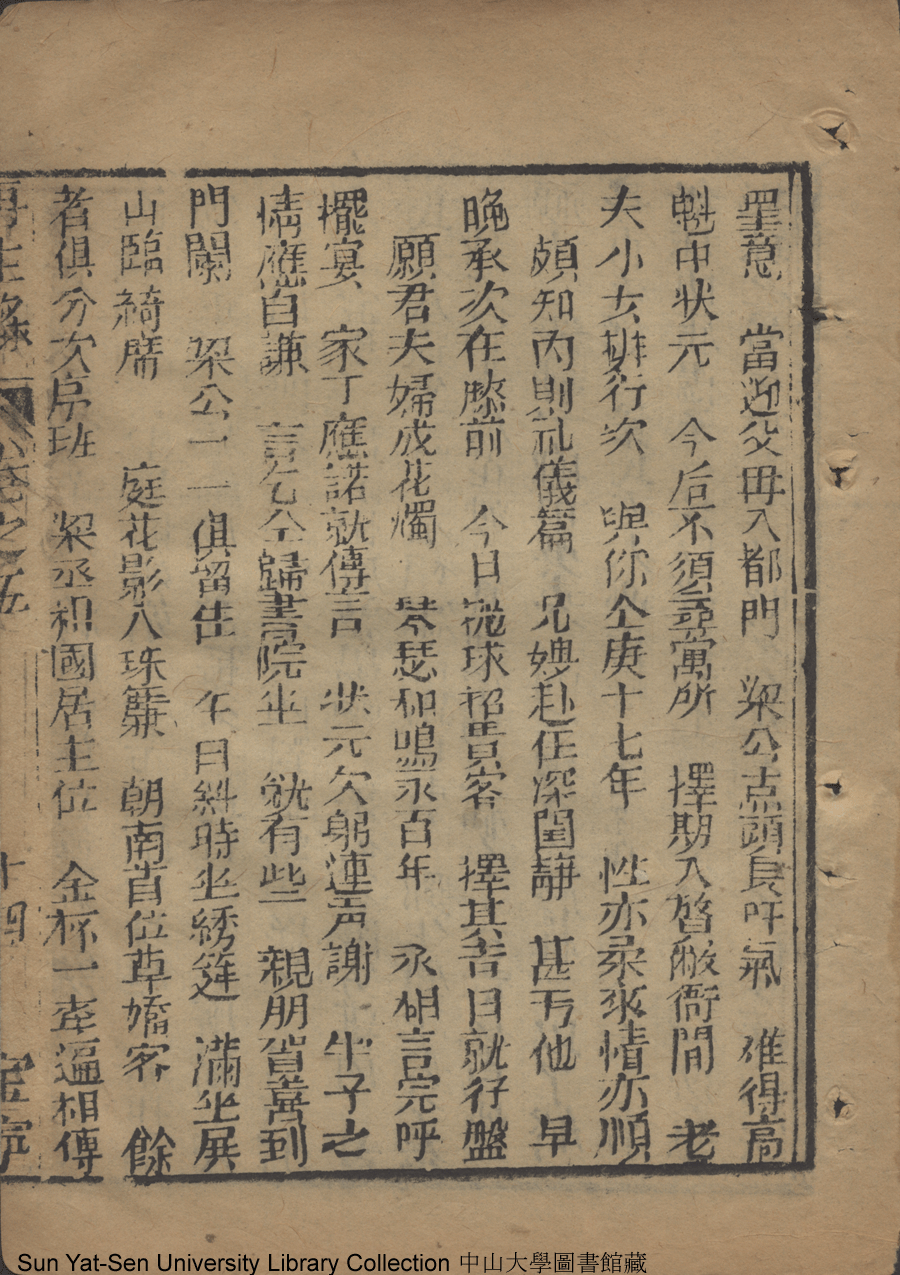 聖意　當迎父毋入都門　梁公点頭良吁氣　难得高
魁中状元　今后不須尋寓所　擇期入啓敝衙間　老
夫小女排行次　與你仝庚十七年　性亦柔來情亦順
頗知內則礼儀篇　兄嫂赴任深閨靜　甚亐他　早
晚承次在膝前　今日抛球招貴客　擇其吉日就行盤
願君夫婦成花燭　琴瑟和鳴永百年　丞相言完呼
擺宴　家丁應諾就傳言　狀元欠躬連声謝　半子之
情應自謙　言乞仝歸書院坐　就有些　親朋賀喜到
門闌　梁公一一俱留住　午日斜時坐綉筵　滿坐屏
山臨綺席　庭花影入珠簾　朝南首位草嬌客　餘
者俱分次序班　梁丞相國居主位　金杯一牽逼相傳
再生緣　卷之五　十四
Sun Yat-Sen University Library Collection 中山大學圖書館藏